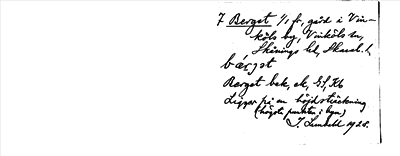 7 Berget 1/1 fr, gård i Vin-
köls by, Vinköls sn,
Skånings hd, Skarab. l.
bærjet
Berget bek, ek, Gf, Kb
Ligger på en höjdsträckning
(högsta punkten i byn)
J. Lundell 1928.